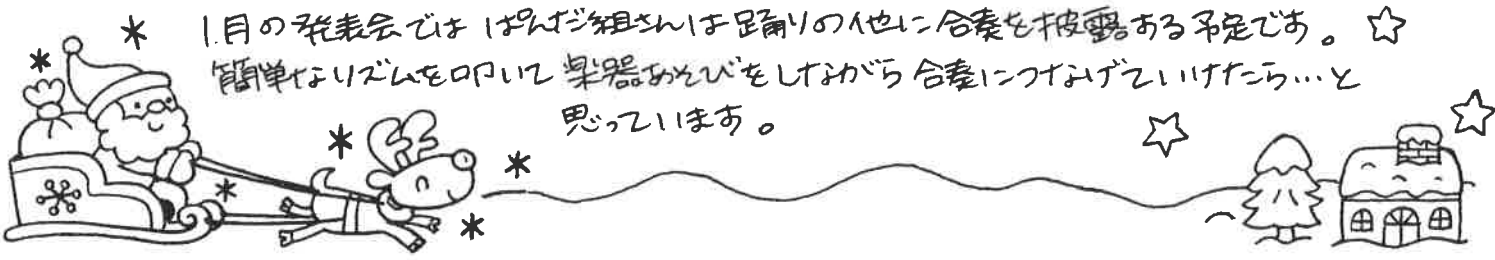 1月の発表会では ぱんだ組さんは踊りの他に合奏を披露する予定です。
簡単なリズムを叩いて楽器あそびをしながら合奏につなげていけたら…と
思っています。